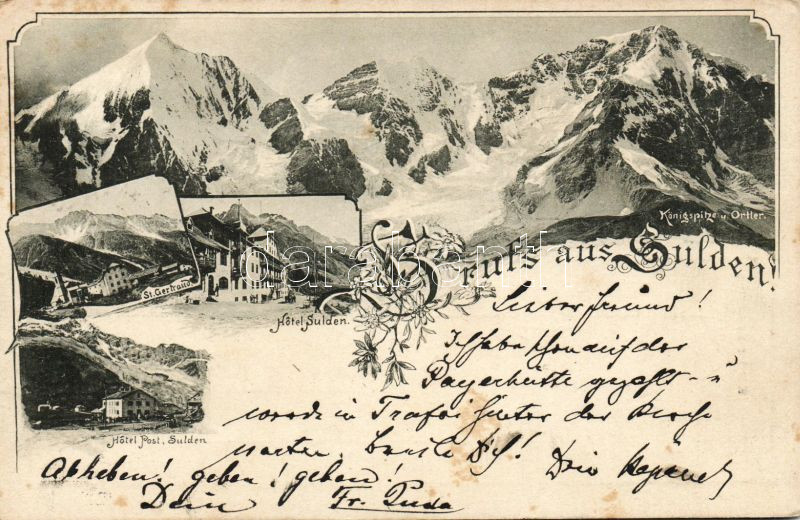 Königspitze u. Ortler.
Gruſs aus Sulden!
St. Gertraud
Hôtel Sulden.
Hôtel Post, Sulden
darabanth
Lieber Freund!
Ich habe schon auf der
Payerhütte gezahlt – u
werde in Trafoi hinter der Kirche
warten. beeile Dich! Dein
Abheben! geben! geben!
Dein Fr. Duda